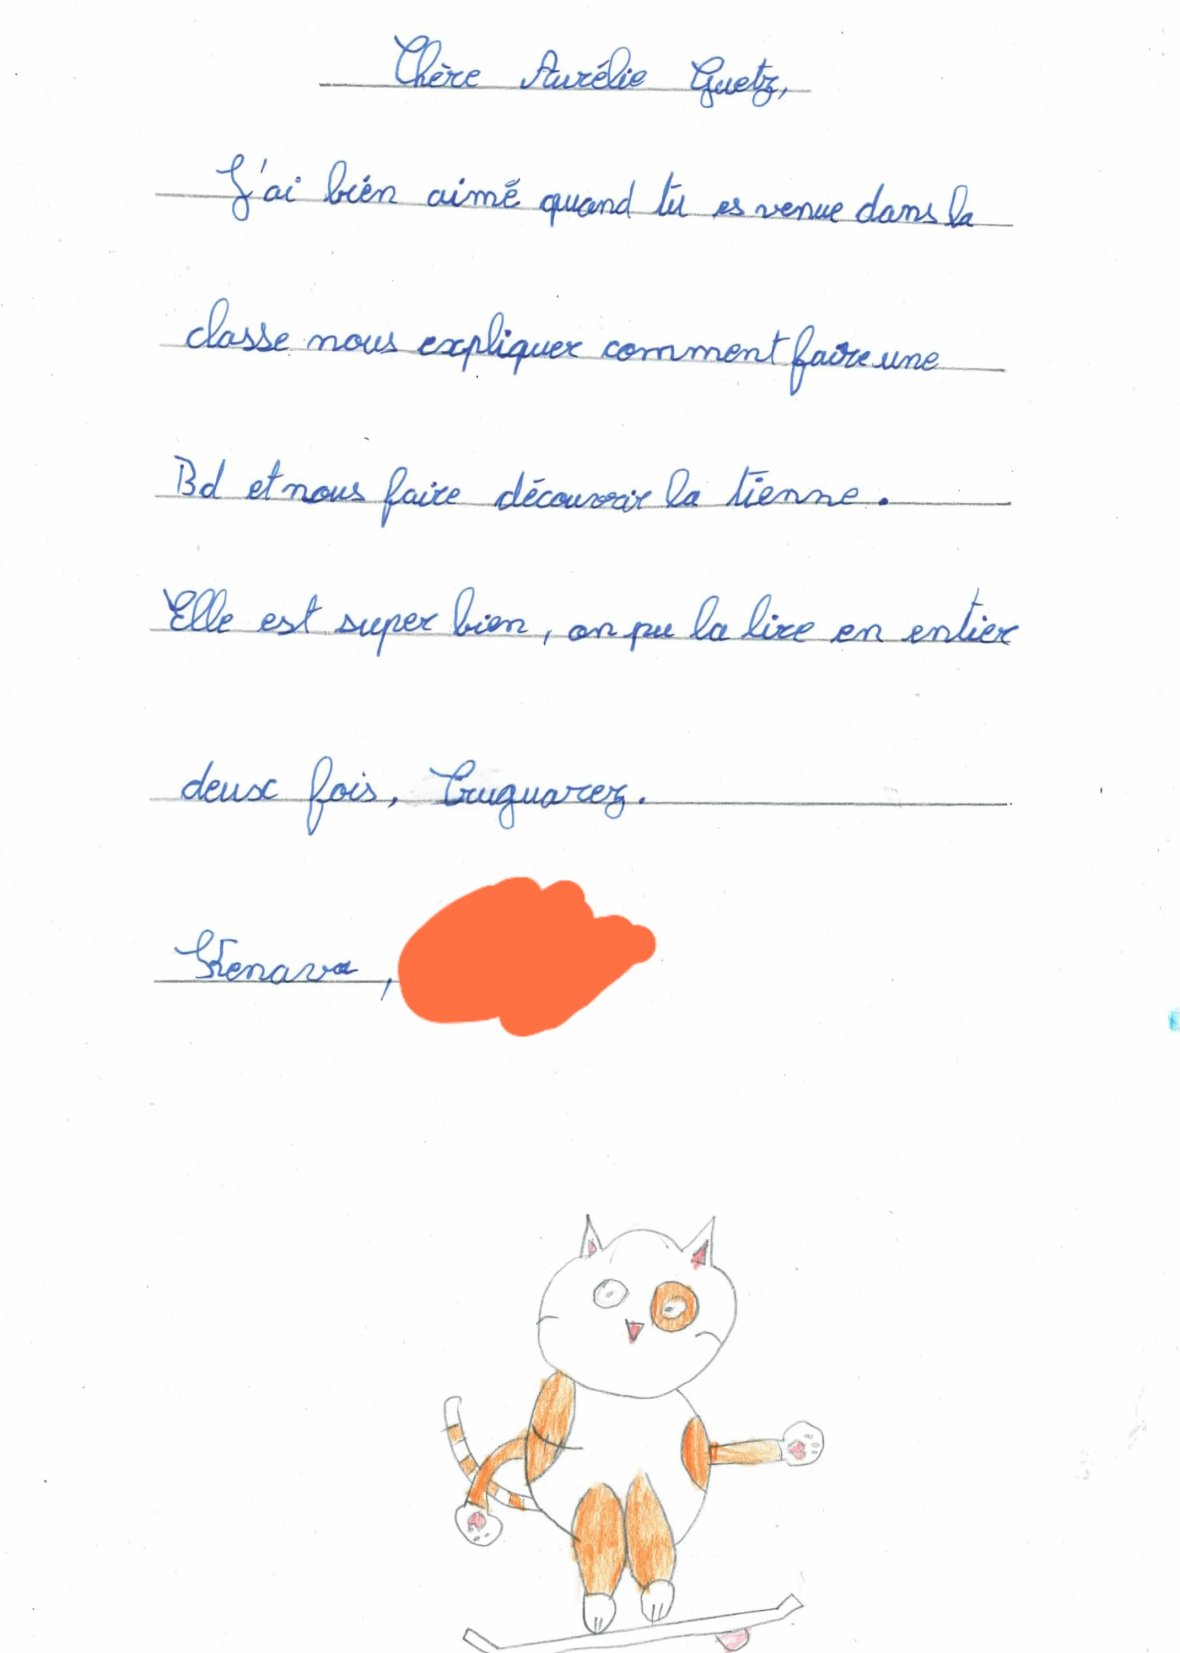 Chère Aurélie Guetz,
J'ai bien aimé quand tu es venue dans la
classe nous expliquer comment faire une
Bd et nous faire découvrir la tienne.
Elle est super bien, on pu la lire en entier
deux fois, Truguarez.
Kenavo,